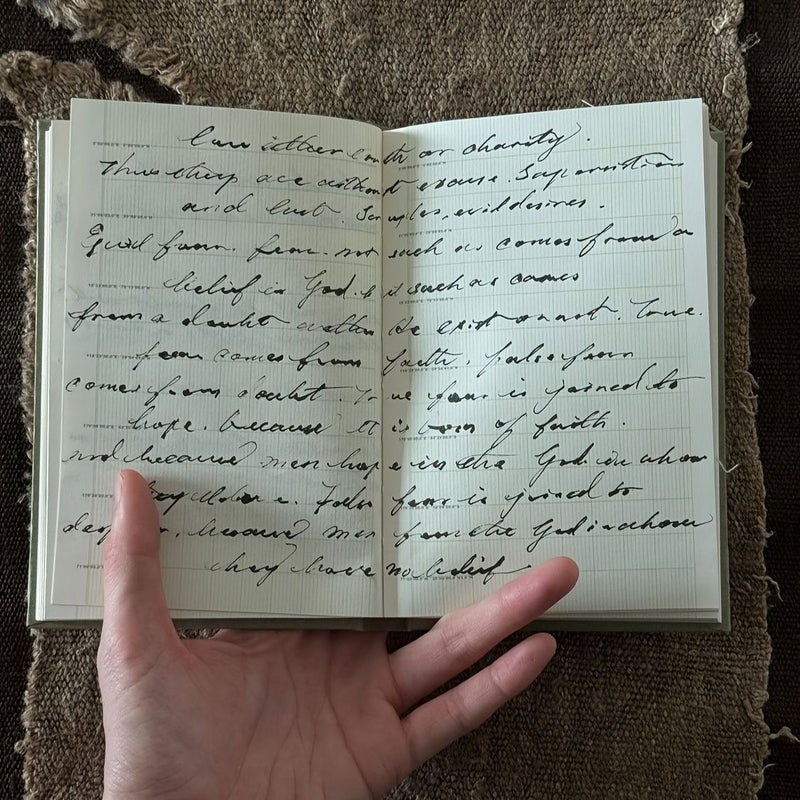 law either truth or charity.
Thus they are without excuse. Superstition
and lust. Scruples, evil desires.
Evil fear. fear. not such as comes from a
belief in God. but such as comes
from a doubt whether He exist or not. True.
fear comes from faith. false fear
comes from doubt. True fear is joined to
hope. because it is born of faith.
and because men hope in the God in whom
they believe. False fear is joined to
despair, because men fear the God in whom
they have no belief